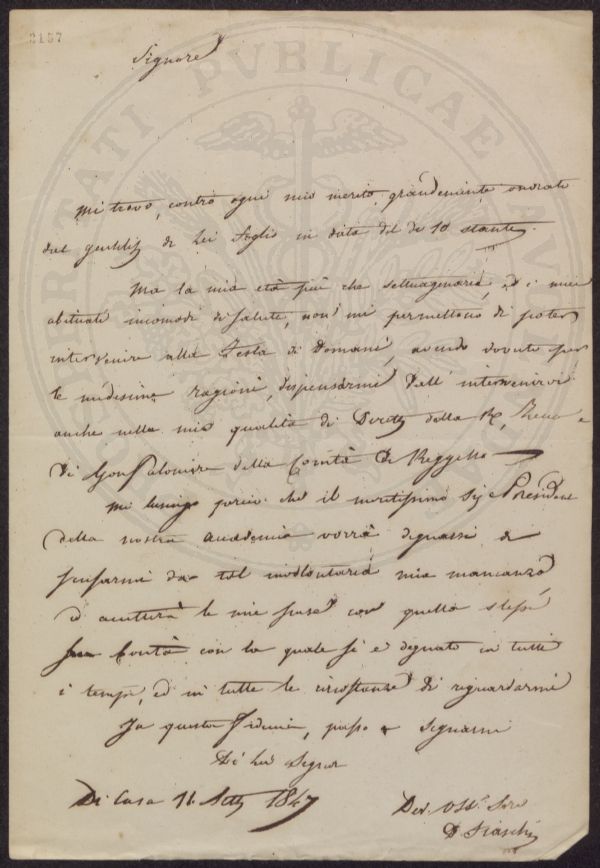 2167
Signore
Mi trovo, contro ogni mio merito, grandemente onorato
dal gentil di Lei foglio in data del dì 10 stante.
Ma la mia età più che settuagenaria, ed i miei
abituati incomodi di salute, non mi permettono di poter
intervenire alla Festa di Domani, avendo dovuto per
le medesime ragioni, dispensarmi dall' intervenirvi
anche nella mia qualità di Dirett della R.
di Gonfaloniere della Comtà di Reggello
Mi lusingo perciò che il meritissimo Sig e President
della nostra Accademia vorrà degnarsi di
scusarmi da tal involontaria mia mancanza,
ed accetterà le mie scuse con quella stessa
bontà con la quale si è degnato in tutti
i tempi, ed in tutte le circostanze di riguardarmi
In questa fiducia, passo a segnarmi
Di Lei Signor
Di Casa 11. Sett 1847
Dev. Oss. Serv